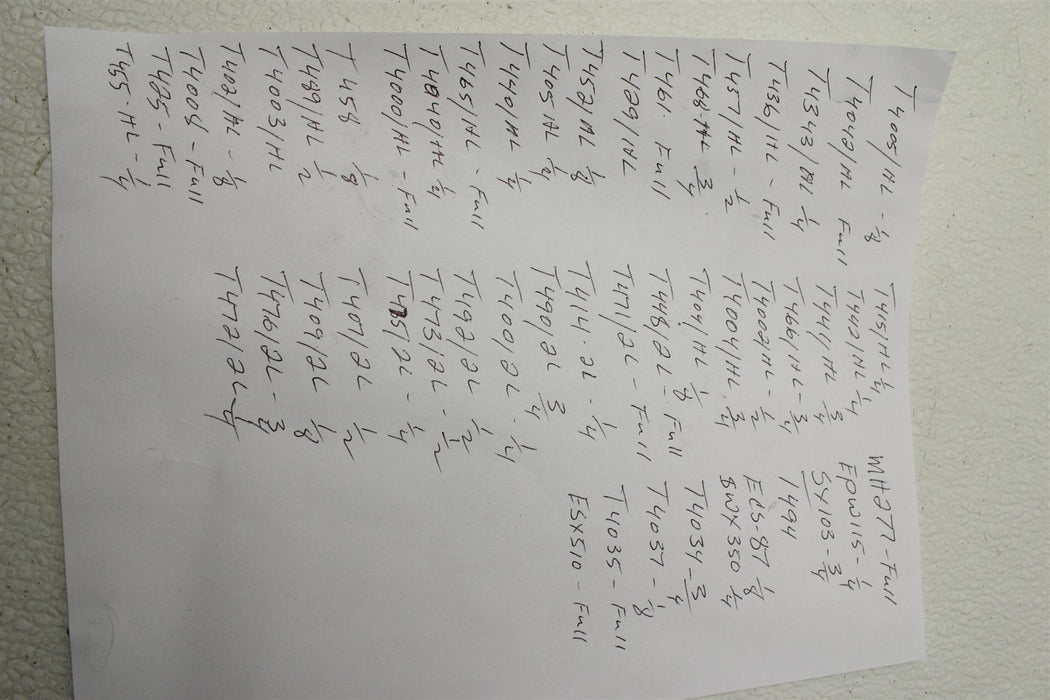 T4005/HL - 1/8
T4040/HL Full
T4343/HL 1/4
T436/HL - Full
T437/HL - 1/2
T468·HL 3/4
T461· Full
T429/HL
T452/HL 1/8
T405·HL 1/4
T440/HL 1/4
T465/HL - Full
T4040/HL 1/4
T4000/HL - Full
T458 1/8
T489/HL 1/2
T4003/HL
T402/HL - 1/8
T4006 - Full
T425 - Full
T455·HL - 1/4
T415/HL 1/4
T442/HL 1/4
T441/HL 3/4
T466/HL - 3/4
T4002/HL - 1/2
T4004/HL 3/4
T401/HL 1/8
T448/2L Full
T471/2L - Full
T414·2L - 1/4
T490/2L 3/4
T400/2L 1/4
T492/2L 1/2
T473/2L - 1/2
/2L - 1/4
T407/2L 1/2
T409/2L 1/8
T476/2L -
T472/2L
MH277 - Full
EPW115 - 1/4
SX103 - 3/4
T494
ECS-87 1/8
BWX350 1/4
T4034 - 3/4
T4037 - 1/8
T4035 - Full
ESX510 - Full